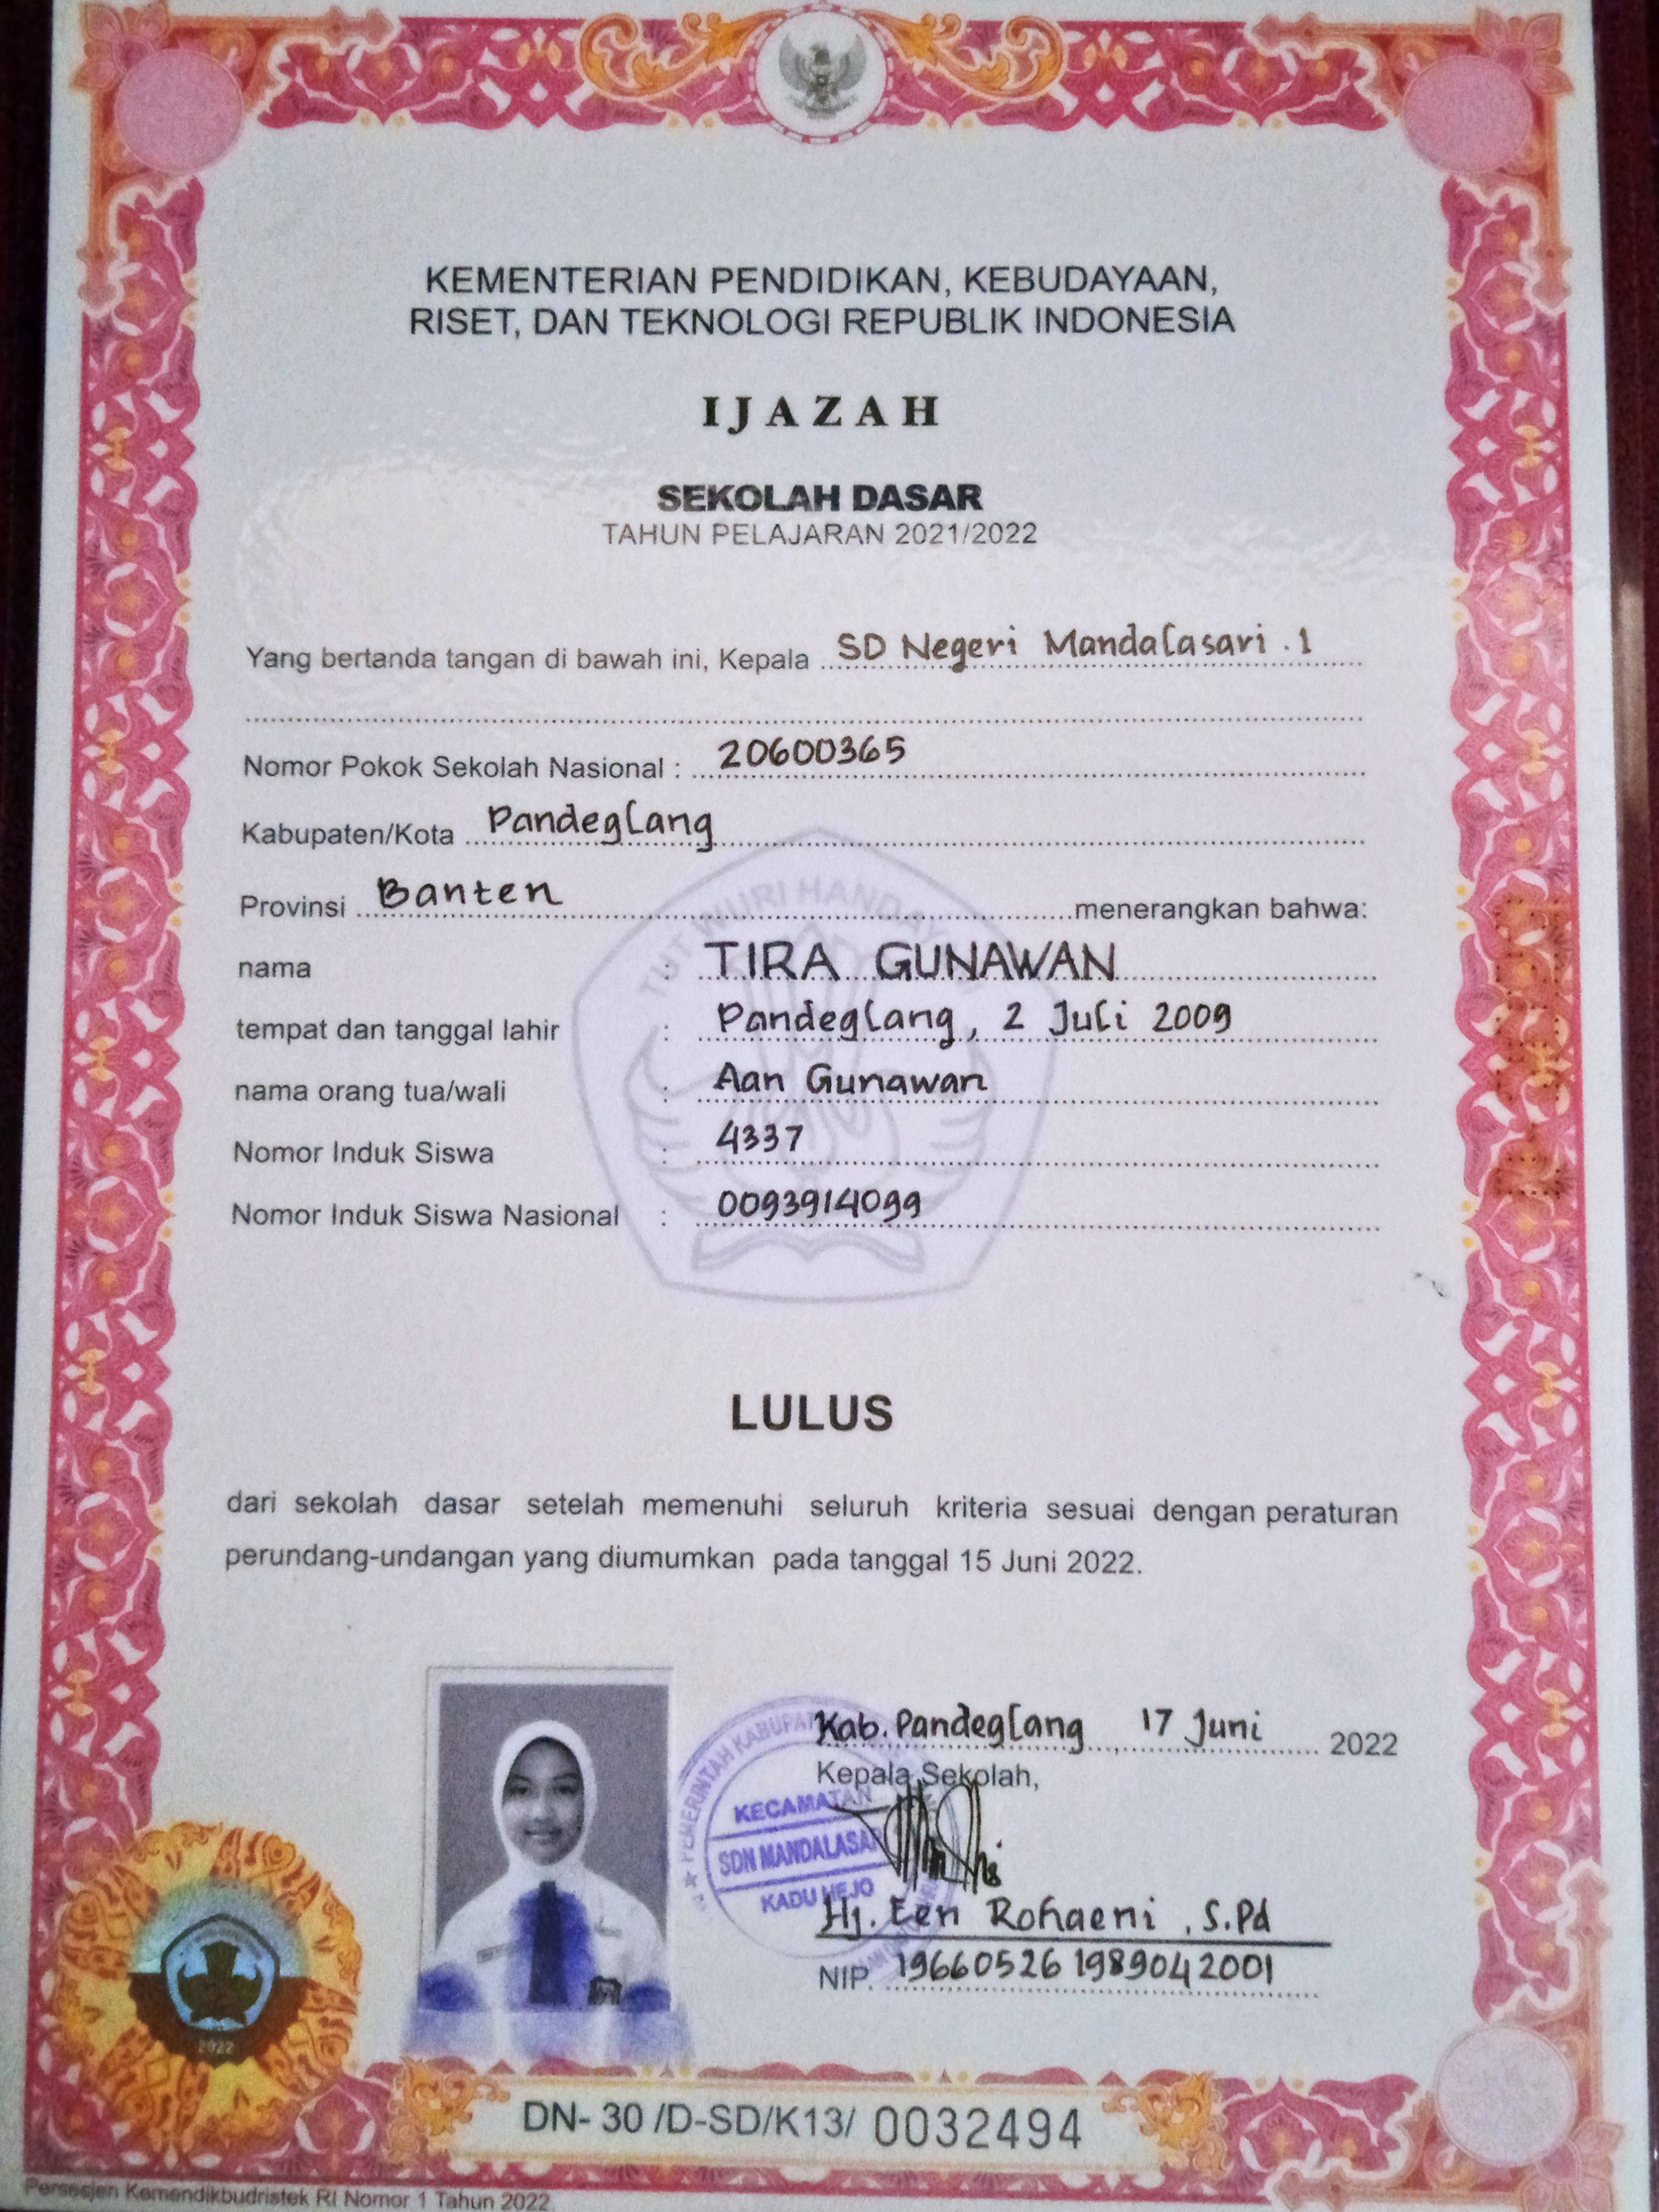 KEMENTERIAN PENDIDIKAN, KEBUDAYAAN,
RISET, DAN TEKNOLOGI REPUBLIK INDONESIA
IJAZAH
SEKOLAH DASAR
TAHUN PELAJARAN 2021/2022
Yang bertanda tangan di bawah ini, Kepala SD Negeri Mandalasari . 1
Nomor Pokok Sekolah Nasional : 20600365
Kabupaten/Kota Pandeglang
Provinsi Banten menerangkan bahwa:
TUT WURI HANDAY
nama : TIRA GUNAWAN
tempat dan tanggal lahir : Pandeglang, 2 Juli 2009
nama orang tua/wali : Aan Gunawan
Nomor Induk Siswa : 4337
Nomor Induk Siswa Nasional : 0093914099
LULUS
dari sekolah dasar setelah memenuhi seluruh kriteria sesuai dengan peraturan
perundang-undangan yang diumumkan pada tanggal 15 Juni 2022.
Kab. Pandeglang, 17 Juni 2022
Kepala Sekolah,
PEMERINTAH KABUPAT
KECAMATAN
SDN MANDALASAR
KADU HEJO
Hj. Een Rohaeni, S.Pd
NIP. 19660526 198904 2001
2022
DN- 30 /D-SD/K13/ 0032494
Persesjen Kemendikbudristek RI Nomor 1 Tahun 2022